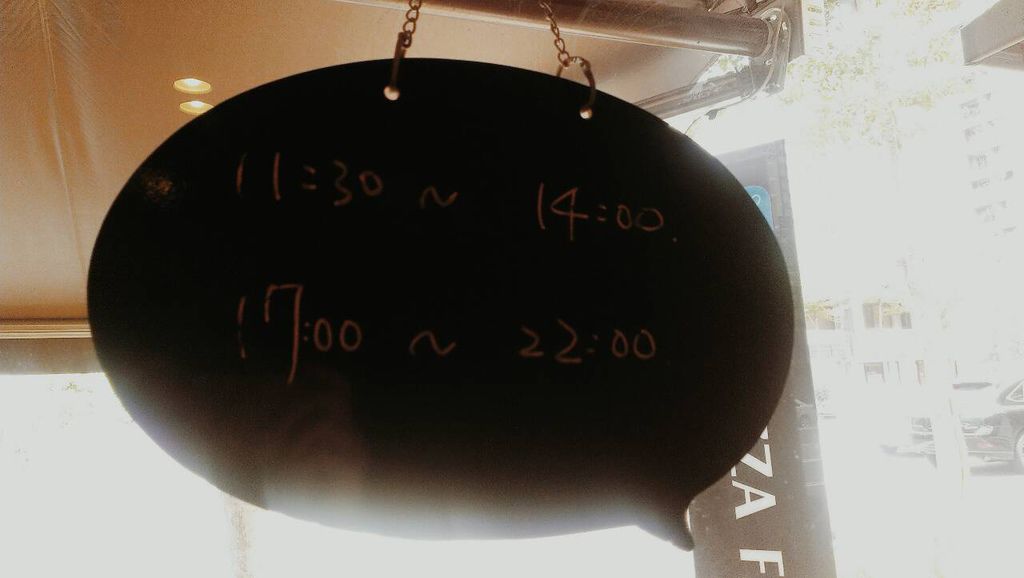 11:30 ~ 14:00.
17:00 ~ 22:00
ZZA F